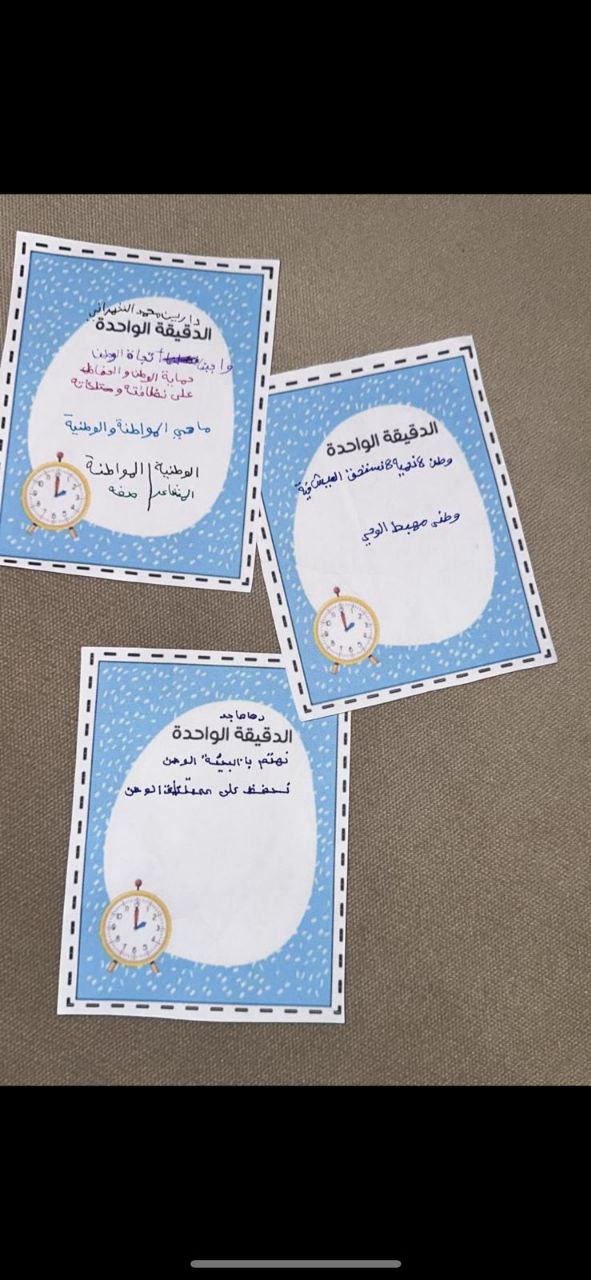 دارين محمد الشهراني
الدقيقة الواحدة
واجبنا تجاة الوطن
حماية الوطن والحفاظ
على نظافته وممتلكاته
ماهي المواطنة والوطنية
الوطنية المواطنة
المشاعر صفه
الدقيقة الواحدة
وطن لا نحميه لا نستحق العيش فية
وطني مهبط الوحي
الدقيقة الواحدة
نهتم با البيئة الوطن
نحفظ على ممتلكات الوطن